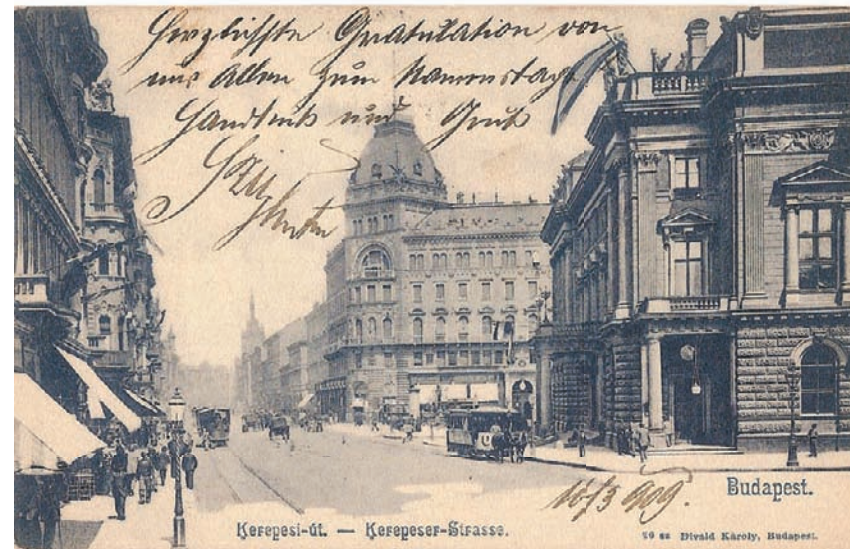 Herzlichste Gratulation von
uns Allen zum Namenstage
Handkuß und Gruß
16/3 909.
Budapest.
Kerepesi-út. — Kerepeser-Strasse.
Divald Károly, Budapest.